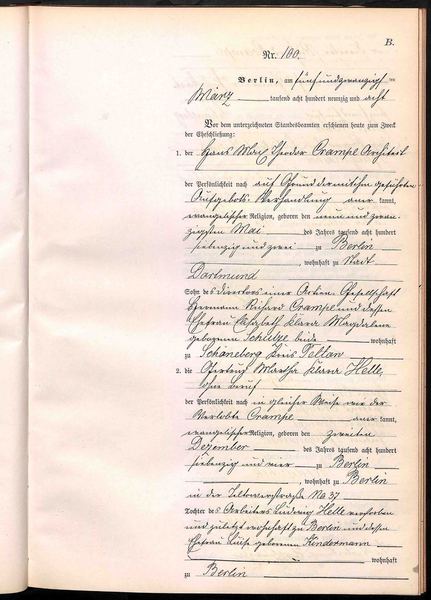 B.
Nr. 100.
Berlin, am fünfundzwanzigsten
März tausend acht hundert neunzig und acht
Vor dem unterzeichneten Standesbeamten erschienen heute zum Zweck
der Eheschließung:
1. der Hans Max Theodor Crampe Architekt
der Persönlichkeit nach auf Grund der mit ihm geführten
Aufgebots-Verhandlung aner kannt,
evangelischer Religion, geboren den neun und zwan-
zigsten Mai des Jahres tausend acht hundert
siebenzig und zwei zu Berlin
, wohnhaft zu Stadt
Dortmund
Sohn des Direktors einer Actien-Gesellschaft
Hermann Richard Crampe und dessen
Ehefrau Elisabeth Klara Magdalene
geborenen Schultze beide wohnhaft
zu Schöneberg Kreis Teltow
2. die Gertrug Martha Klara Helle,
ohne Beruf
der Persönlichkeit nach in gleicher Weise wie der
Verlobte Crampe aner kannt,
evangelischer Religion, geboren den zweiten
Dezember des Jahres tausend acht hundert
siebenzig und vier zu Berlin
, wohnhaft zu Berlin
in der Teltowerstraße No 37
Tochter des Arbeiters Ludwig Helle verstorben
und zuletzt wohnhaft zu Berlin und dessen
Ehefrau Luise geborenen Kindermann
wohnhaft
zu Berlin